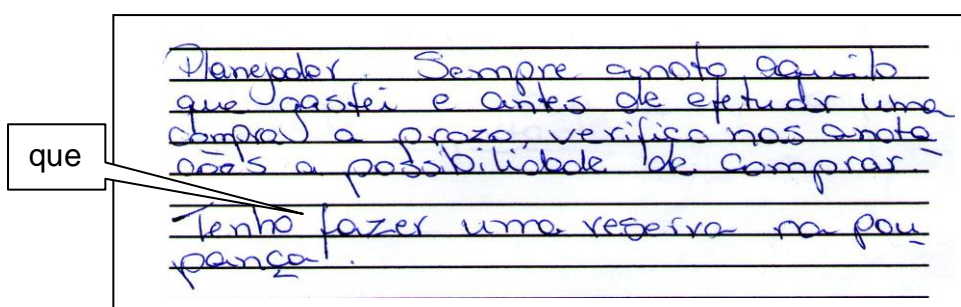 Planejador. Sempre anoto aquilo
que gastei e antes de efetuar uma
compra a prazo, verifico nos anota
ções a possibilidade de comprar.
que
Tenho fazer uma reserva na pou
pança.